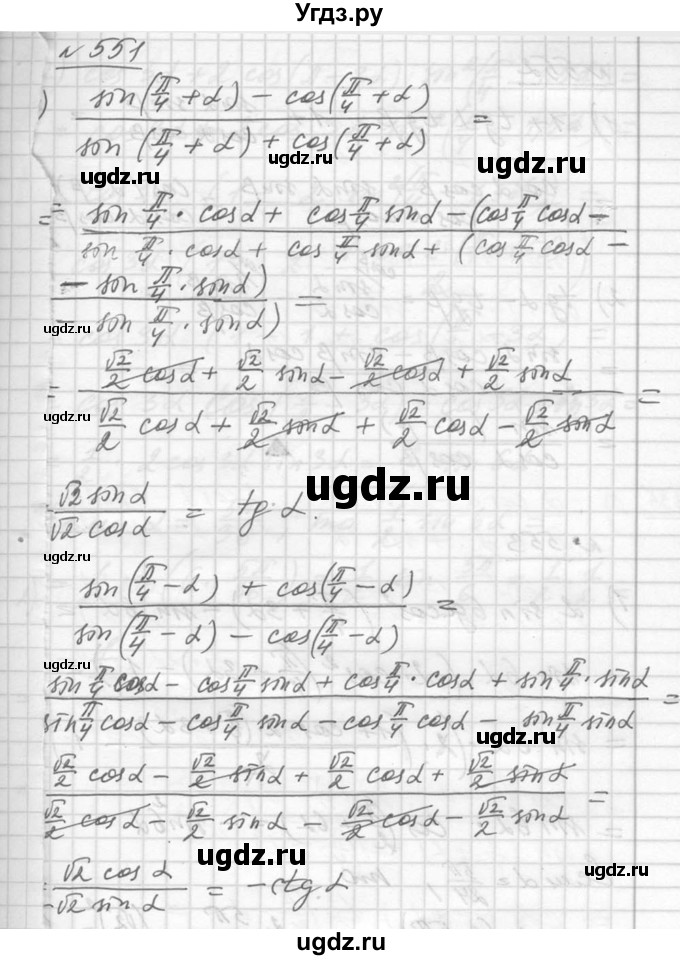 Угдз.ру
№ 551
) (sin(π/4 + α) − cos(π/4 + α)) / (sin(π/4 + α) + cos(π/4 + α)) =
ugdz.ru
ugdz.ru
= (sin π/4 · cosα + cos π/4 sinα − (cos π/4 cosα −) / (sin π/4 · cosα + cos π/4 sinα + (cos π/4 cosα −)
(− sin π/4 · sinα)) / (− sin π/4 · sinα)) =
ugdz.ru
ugdz.ru
= (√2/2 cosα + √2/2 sinα − √2/2 cosα + √2/2 sinα) / (√2/2 cosα + √2/2 sinα + √2/2 cosα − √2/2 sinα) =
ugdz.ru
ugdz.ru
√2 sinα / √2 cosα = tg α.
ugdz.ru
(sin(π/4 − α) + cos(π/4 − α)) / (sin(π/4 − α) − cos(π/4 − α)) =
ugdz.ru
(sin π/4 cosα − cos π/4 sinα + cos π/4 · cosα + sin π/4 · sinα) / (sin π/4 cosα − cos π/4 sinα − cos π/4 cosα − sin π/4 sinα) =
ugdz.ru
(√2/2 cosα − √2/2 sinα + √2/2 cosα + √2/2 sinα) / (√2/2 cosα − √2/2 sinα − √2/2 cosα − √2/2 sinα) =
ugdz.ru
√2 cosα / −√2 sinα = −ctg α
ugdz.ru
ugdz.ru